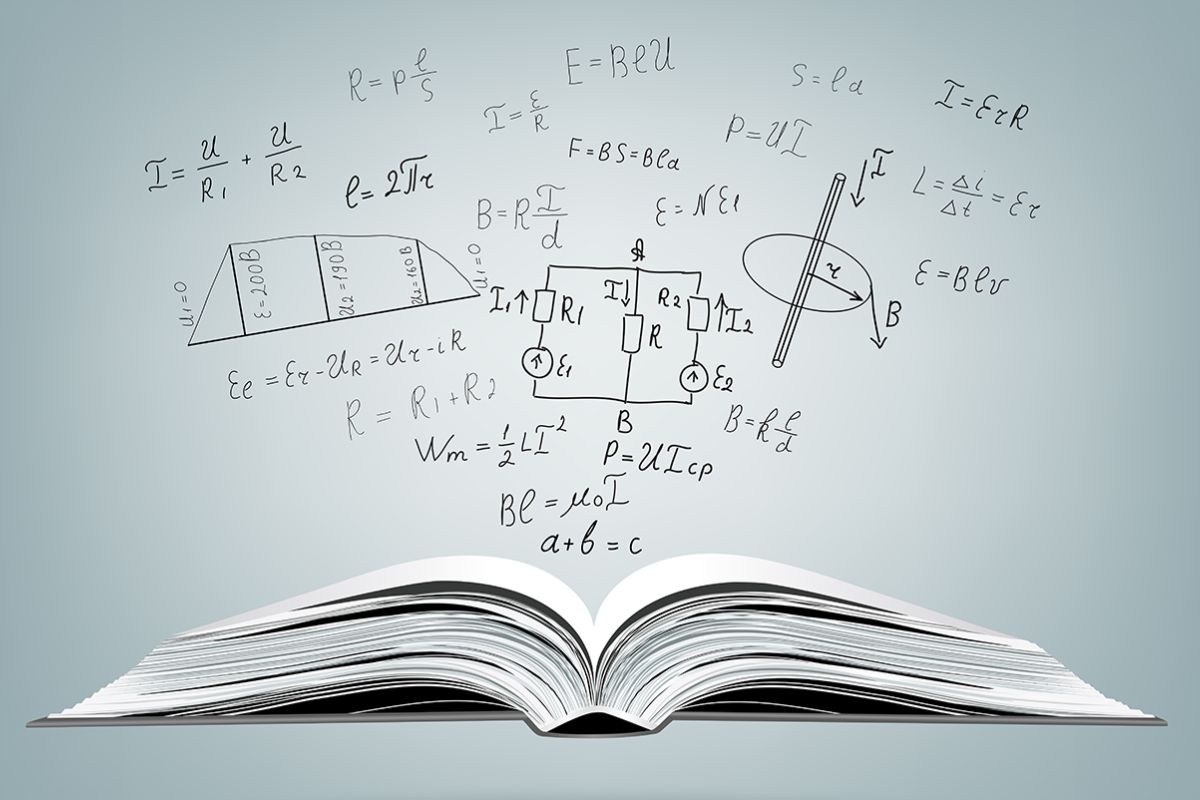 R = p ℓ/S
E = BℓU
S = ℓa
I = ℰrR
I = ℰ/R
P = UI
I = U/R1 + U/R2
F = BS = Bℓa
I
ℓ = 2πr
L = Δi/Δt = ℰr
B = R I/d
ℰ = Nℰ1
A
U1 = 0
ℰ = 200B
U2 = 190B
U2 = 160B
U1 = 0
r
ℰ = Bℓv
I1 R1
I R
R2 I2
B
ℰ1
ℰ2
ℰe = ℰr - UR = Ur - iR
R = R1 + R2
B
B = k ℓ/d
Wm = 1/2 LI²
P = UIcp
Bℓ = μ0I
a + b = c